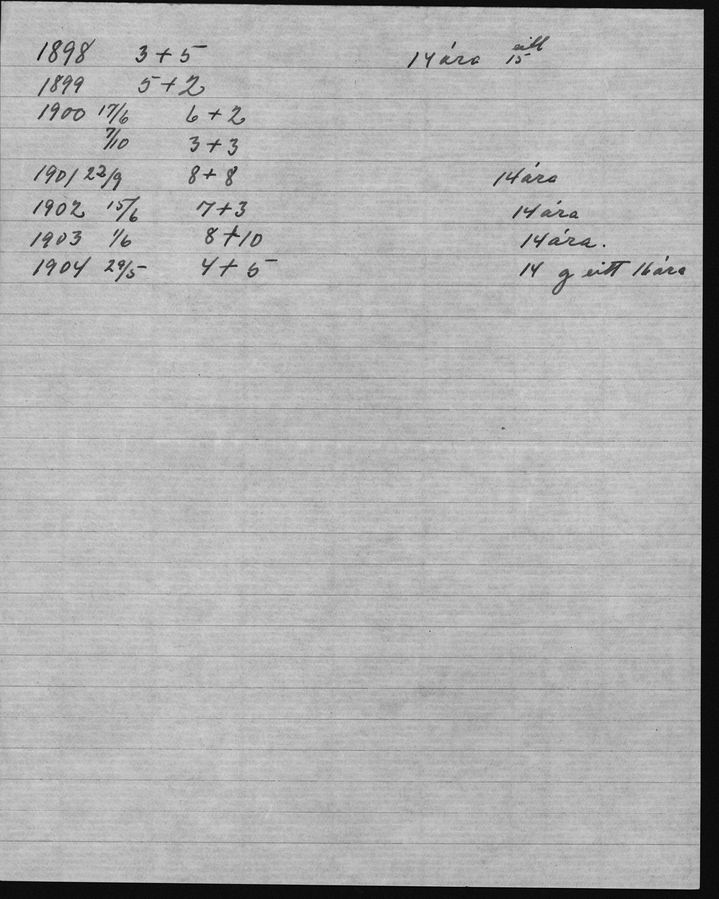 1898 3 + 5 14 ára eitt 15
1899 5 + 2
1900 17/6 6 + 2
7/10 3 + 3
1901 22/9 8 + 8 14 ára
1902 15/6 7 + 3 14 ára
1903 1/6 8 + 10 14 ára.
1904 29/5 4 + 5 14 g eitt 16 ára